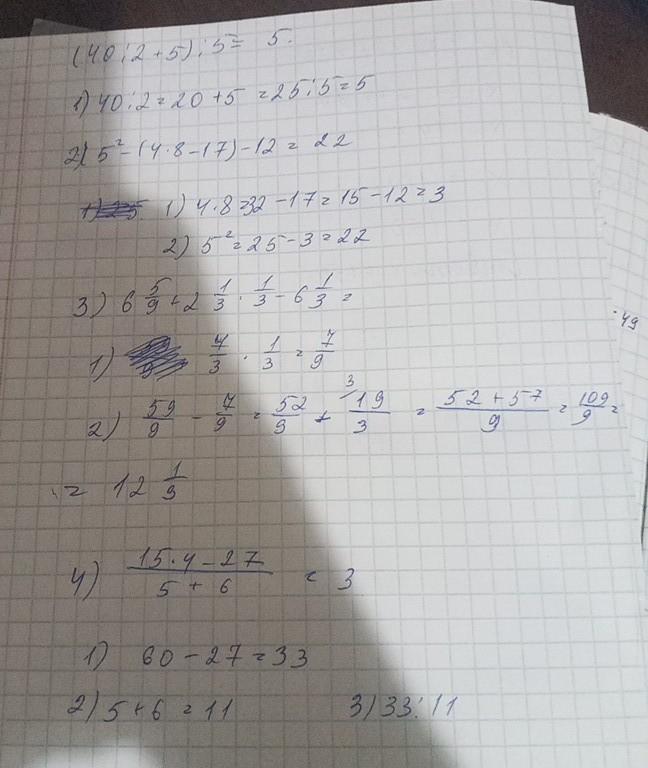 (40 : 2 + 5) : 5 = 5.
1) 40 : 2 = 20 + 5 = 25 : 5 = 5
2) 5² - (4 · 8 - 17) - 12 = 22
1) 4 · 8 = 32 - 17 = 15 - 12 = 3
2) 5² = 25 - 3 = 22
3) 6 5/9 + 2 1/3 · 1/3 - 6 1/3 =
1) 7/3 · 1/3 = 7/9
2) 59/9 - 7/9 = 52/9 + 19/3 3 = 52 + 57/9 = 109/9 =
= 12 1/9
4) 15 · 4 - 27/5 + 6 = 3
1) 60 - 27 = 33
2) 5 + 6 = 11 3) 33 : 11
· 49